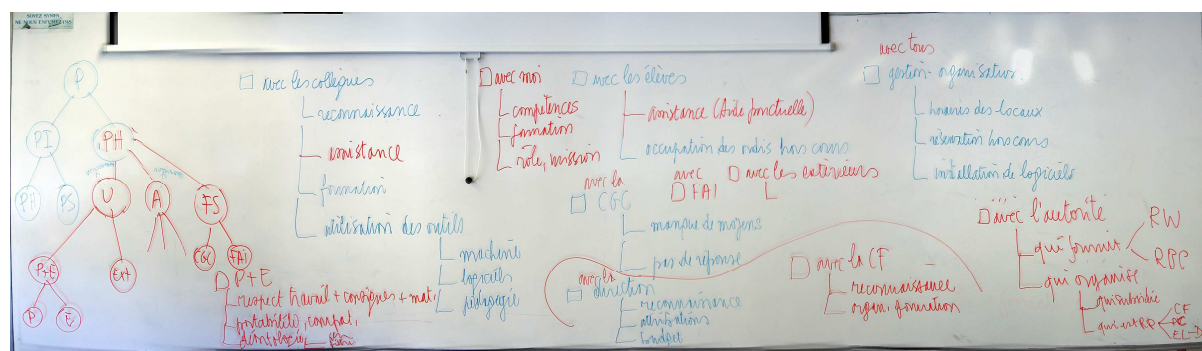 SOYEZ SYMPA
NE NOUS ENFUMEZ PAS
P
PI
PH
PH
PS
U
A
FS
P+E
Ext
CGC
FAI
P
E
avec les collègues
reconnaissance
assistance
formation
utilisation des outils
machine
logiciels
pédagogie
P+E
respect travail + consignes + mat.
portabilité, compat,
déontologie
avec moi
compétences
formation
rôle, mission
avec les élèves
assistance (Aide ponctuelle)
occupation des outils hors cours
avec la
CGC
manque de moyens
pas de réponse
avec
FAI
avec les extérieurs
avec la
direction
reconnaissance
attributions
budget
avec la CF
reconnaissance
organ. formation
avec tous
gestion-organisateur
horaires des locaux
réservation hors cours
installation de logiciels
avec l'autorité
qui fournit
RW
RBC
qui organise
qui subsidie
qui est RP
CF